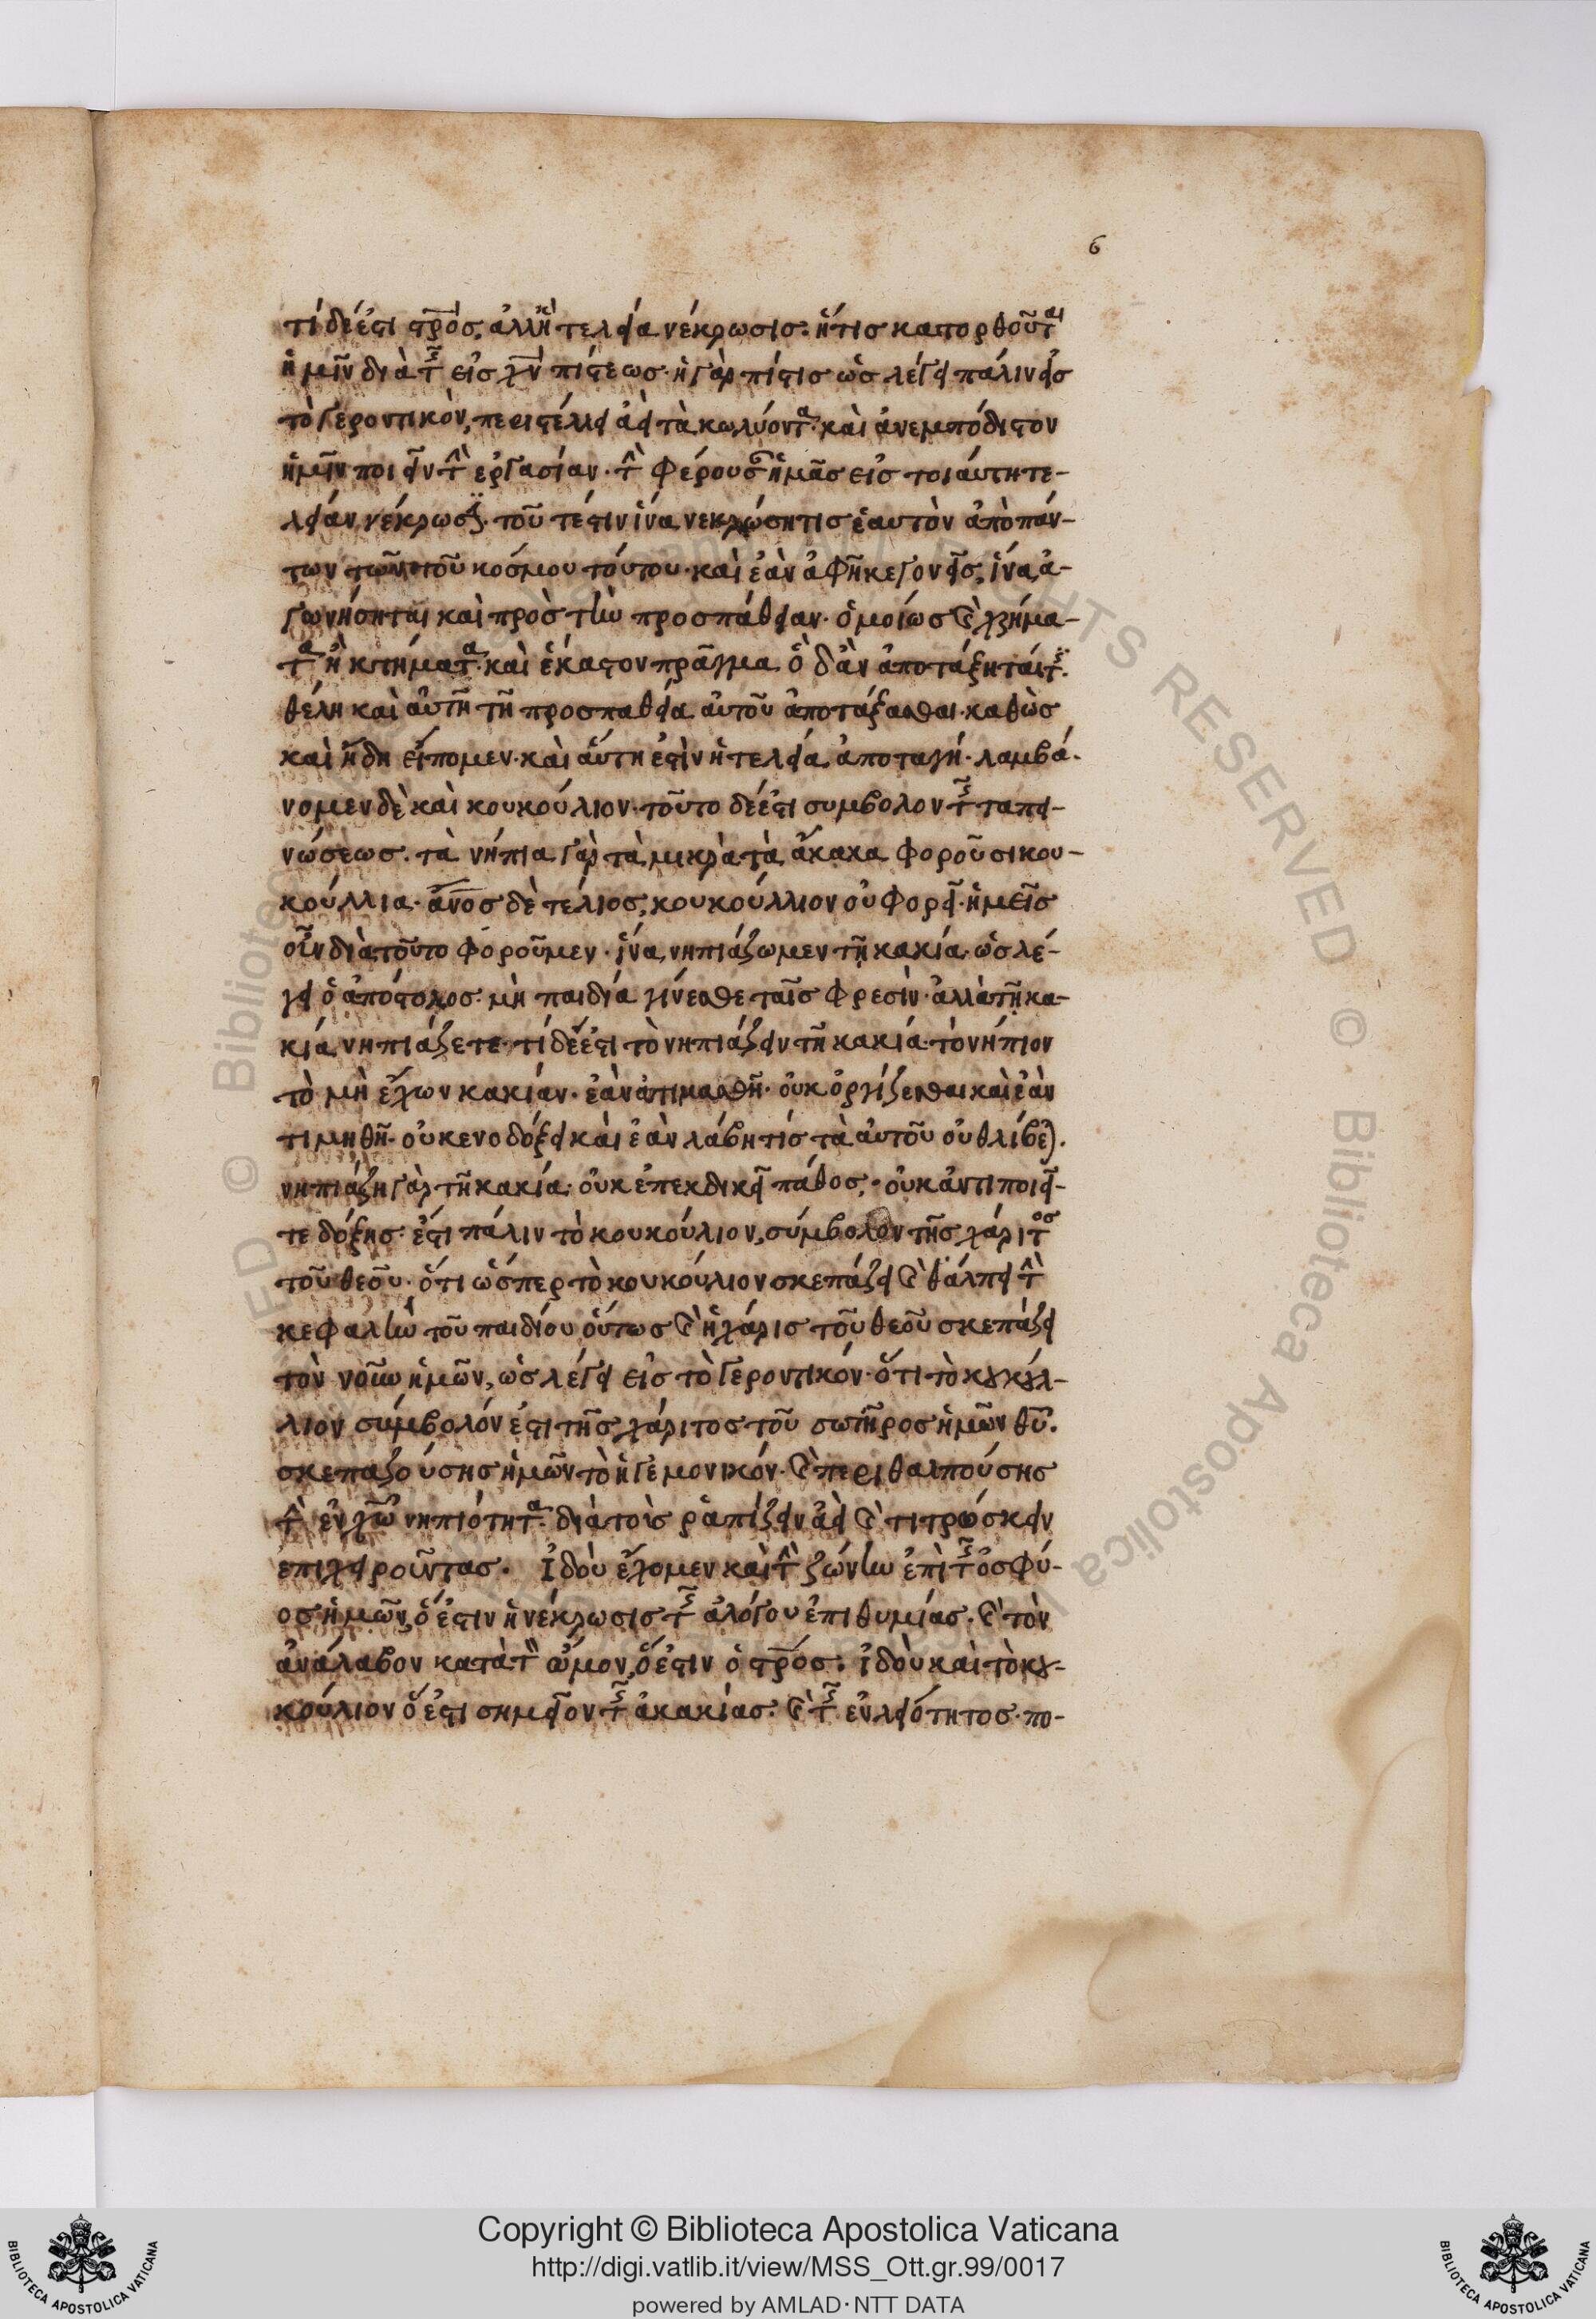 6
τί δέ ἐστι σ̅ρ̅ό̅ς̅, ἀλλ' ἢ τελεία νέκρωσις· ἥτις κατορθοῦται
ἡμῖν διὰ τῆς εἰς χ̅ν̅ πίστεως· ἡ γὰρ πίστις ὡς λέγει πάλιν εἰς
τὸ γεροντικὸν, περιστέλλει ἀεὶ τὰ κωλύοντα· καὶ ἀνεμπόδιστον
ἡμῖν ποιεῖν τὴν ἐργασίαν· τὴν φέρουσαν ἡμᾶς εἰς τοιαύτη τε-
λείαν νέκρωσιν· τοῦ τέστιν ἵνα νεκρώση τις ἑαυτὸν ἀπὸ πάν-
των τῶν τοῦ κόσμου τούτου· καὶ ἐὰν ἀφῆκε γονεῖς, ἵνα ἀ-
γωνήσηται καὶ πρὸς τὴν προσπάθειαν· ὁμοίως καὶ χρήμα-
τα ἢ κτήματα· καὶ ἕκαστον πρᾶγμα ὃ δ' ἂν ἀποτάξηταί τις·
θέλη καὶ αὐτῆ τῆ προσπαθεία αὐτοῦ ἀποτάξασθαι· καθὼς
καὶ ἤδη εἴπομεν· καὶ αὕτη ἐστὶν ἡ τελεία ἀποταγή· λαμβά-
νομεν δὲ καὶ κουκούλιον· τοῦτο δέ ἐστι συμβολον τῆς ταπει-
νώσεως· τὰ νήπια γὰρ τὰ μικρὰ τὰ ἄκακα φοροῦσι κου-
κούλλια· ἄ̅ν̅ο̅ς̅ δὲ τέλιος, κουκούλλιον οὐ φορεῖ· ἡμεῖς
οὖν διὰ τοῦτο φοροῦμεν· ἵνα νηπιάζωμεν τῆ κακία· ὡς λέ-
γει ὁ ἀπόστολος· μὴ παιδία γίνεσθε ταῖς φρεσὶν· ἀλλὰ τῆ κα-
κία νηπιάζετε· τί δέ ἐστι τὸ νηπιάζειν τῆ κακία· τὸ νήπιον
τὸ μὴ ἔχων κακίαν· ἐὰν ἀτιμασθῆ· οὐκ ὀργίζεσθαι καὶ ἐὰν
τιμηθῆ· οὐ κενοδόξει καὶ ἐὰν λάβη τίς τὰ αὐτοῦ οὐ θλίβεται·
νηπιάζη γὰρ τῆ κακία· οὐκ ἐπεκδικεῖ πάθος, οὐκ ἀντιποιεῖ-
τε δόξης· ἔστι πάλιν τὸ κουκούλιον, σύμβολον τῆς χάριτος
τοῦ θεοῦ· ὅτι ὥσπερ τὸ κουκούλιον σκεπάζει καὶ θάλπει τὴν
κεφαλὴν τοῦ παιδίου οὕτως καὶ ἡ χάρις τοῦ θεοῦ σκεπάζει
τὸν νοῦν ἡμῶν, ὡς λέγει εἰς τὸ γεροντικόν· ὅτι τὸ κȣκȣ́λ-
λιον σύμβολόν ἐστι τῆς χάριτος τοῦ σωτῆρος ἡμῶν θ̅υ̅.
σκεπαζούσης ἡμῶν τὸ ἡγεμονικόν· καὶ περιθαλπούσης
τὴν ἐν χ̅ω̅ νηπιότητα· διὰ τοὺς ῥαπίζειν ἀεὶ καὶ τιτρώσκειν
ἐπιχειροῦντας. Ἰδοὺ ἔχομεν καὶ τὴν ζώνην ἐπὶ τῆς ὀσφύ-
ος ἡμῶν, ὅ ἐστιν ἡ νέκρωσις τῆς ἀλόγου ἐπιθυμίας· καὶ τὸν
ἀνάλαβον κατὰ τὸν ὦμον, ὅ ἐστιν ὁ σ̅ρ̅ό̅ς̅. ἰδοὺ καὶ τὸ κȣ-
κούλιον ὅ ἐστι σημεῖον τῆς ἀκακίας· καὶ τῆς εὐλειότητος· πο-
Copyright © Biblioteca Apostolica Vaticana
http://digi.vatlib.it/view/MSS_Ott.gr.99/0017
powered by AMLAD · NTT DATA
BIBLIOTECA APOSTOLICA VATICANA
BIBLIOTECA APOSTOLICA VATICANA